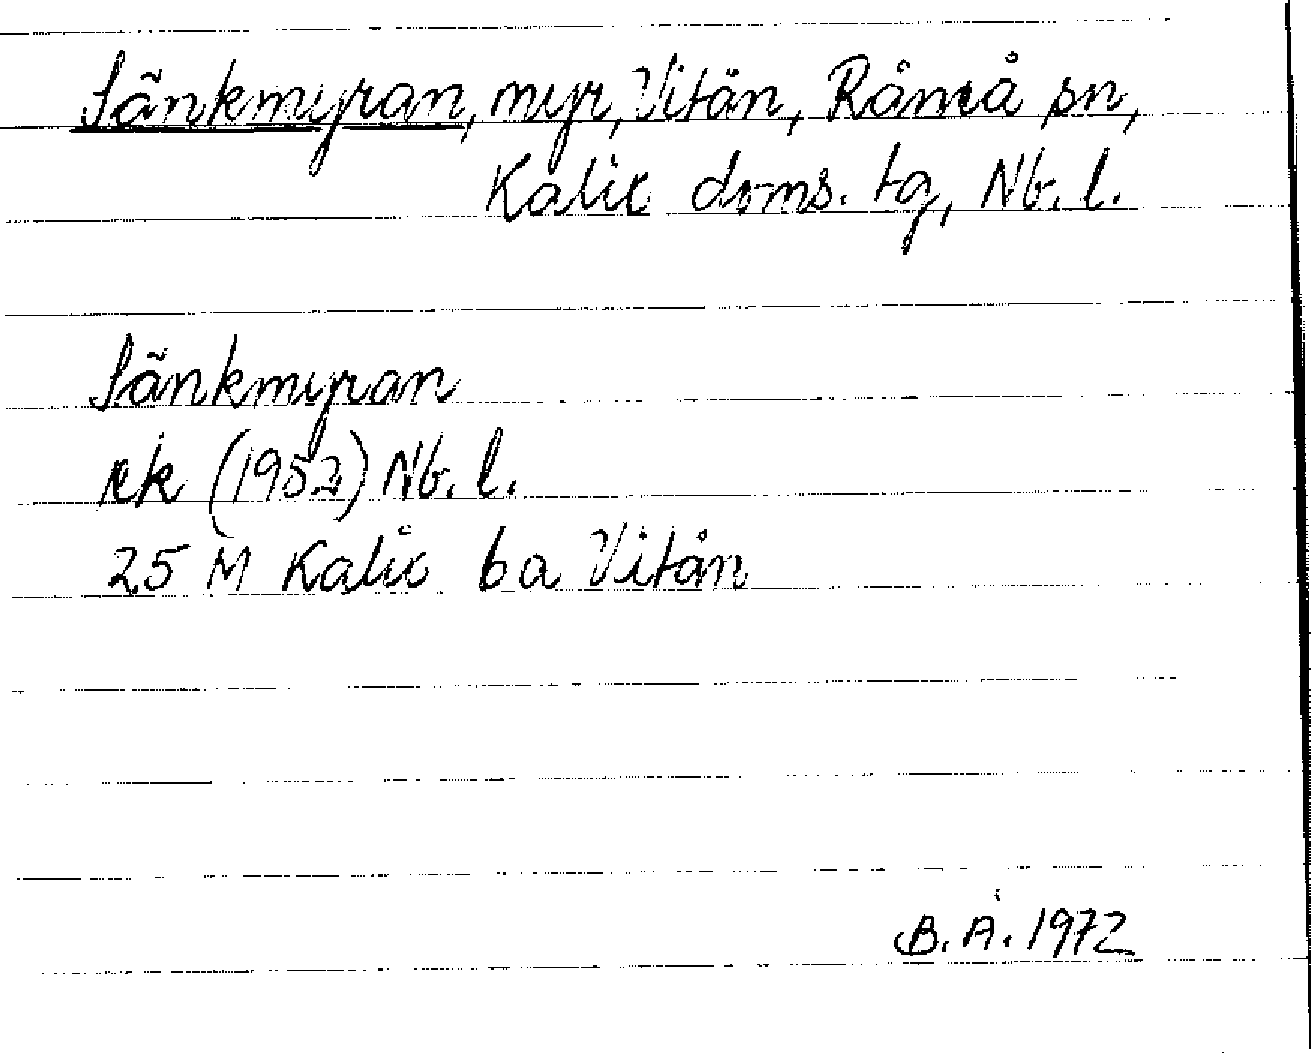 Sänkmyran, myr, Vitån, Råneå sn,
Kalix doms. tg, Nb. l.
Sänkmyran
rk (1952) Nb. l.
25 M Kalix 6a Vitån
B.Å. 1972